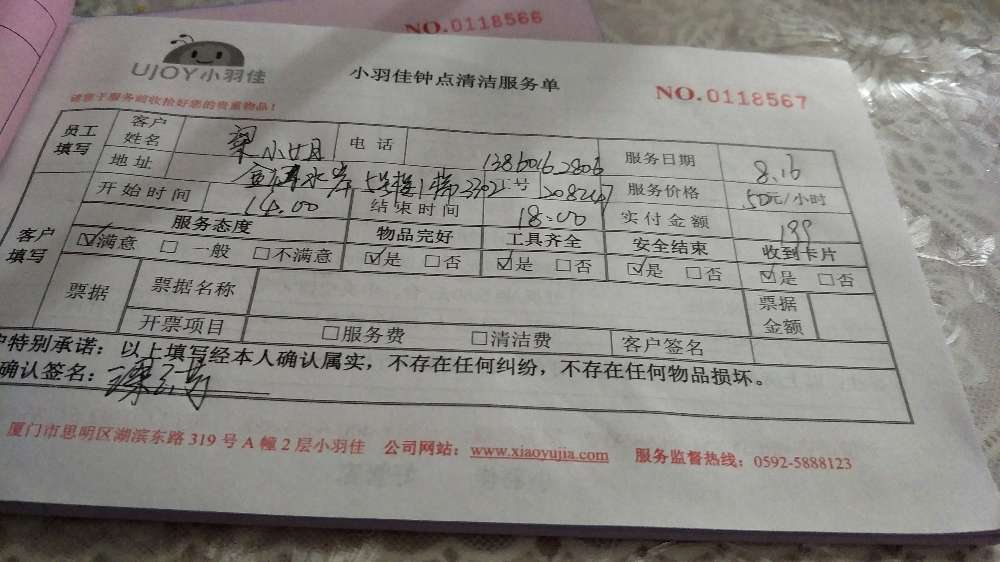 NO.0118566
UJOY小羽佳
小羽佳钟点清洁服务单
NO.0118567
请您于服务前收拾好您的贵重物品!
员工填写 客户姓名 电话 服务日期 8.16
地址 2302 工号 208247 服务价格 50元/小时
开始时间 14.00 结束时间 18:00 实付金额 199
客户填写 服务态度 物品完好 工具齐全 安全结束 收到卡片
☑满意 □一般 □不满意 ☑是 □否 ☑是 □否 ☑是 □否 ☑是 □否
票据 票据名称 票据金额
开票项目 □服务费 □清洁费 客户签名
户特别承诺:以上填写经本人确认属实,不存在任何纠纷,不存在任何物品损坏。
确认签名:
厦门市思明区湖滨东路 319 号 A 幢 2 层小羽佳 公司网站:www.xiaoyujia.com 服务监督热线:0592-5888123